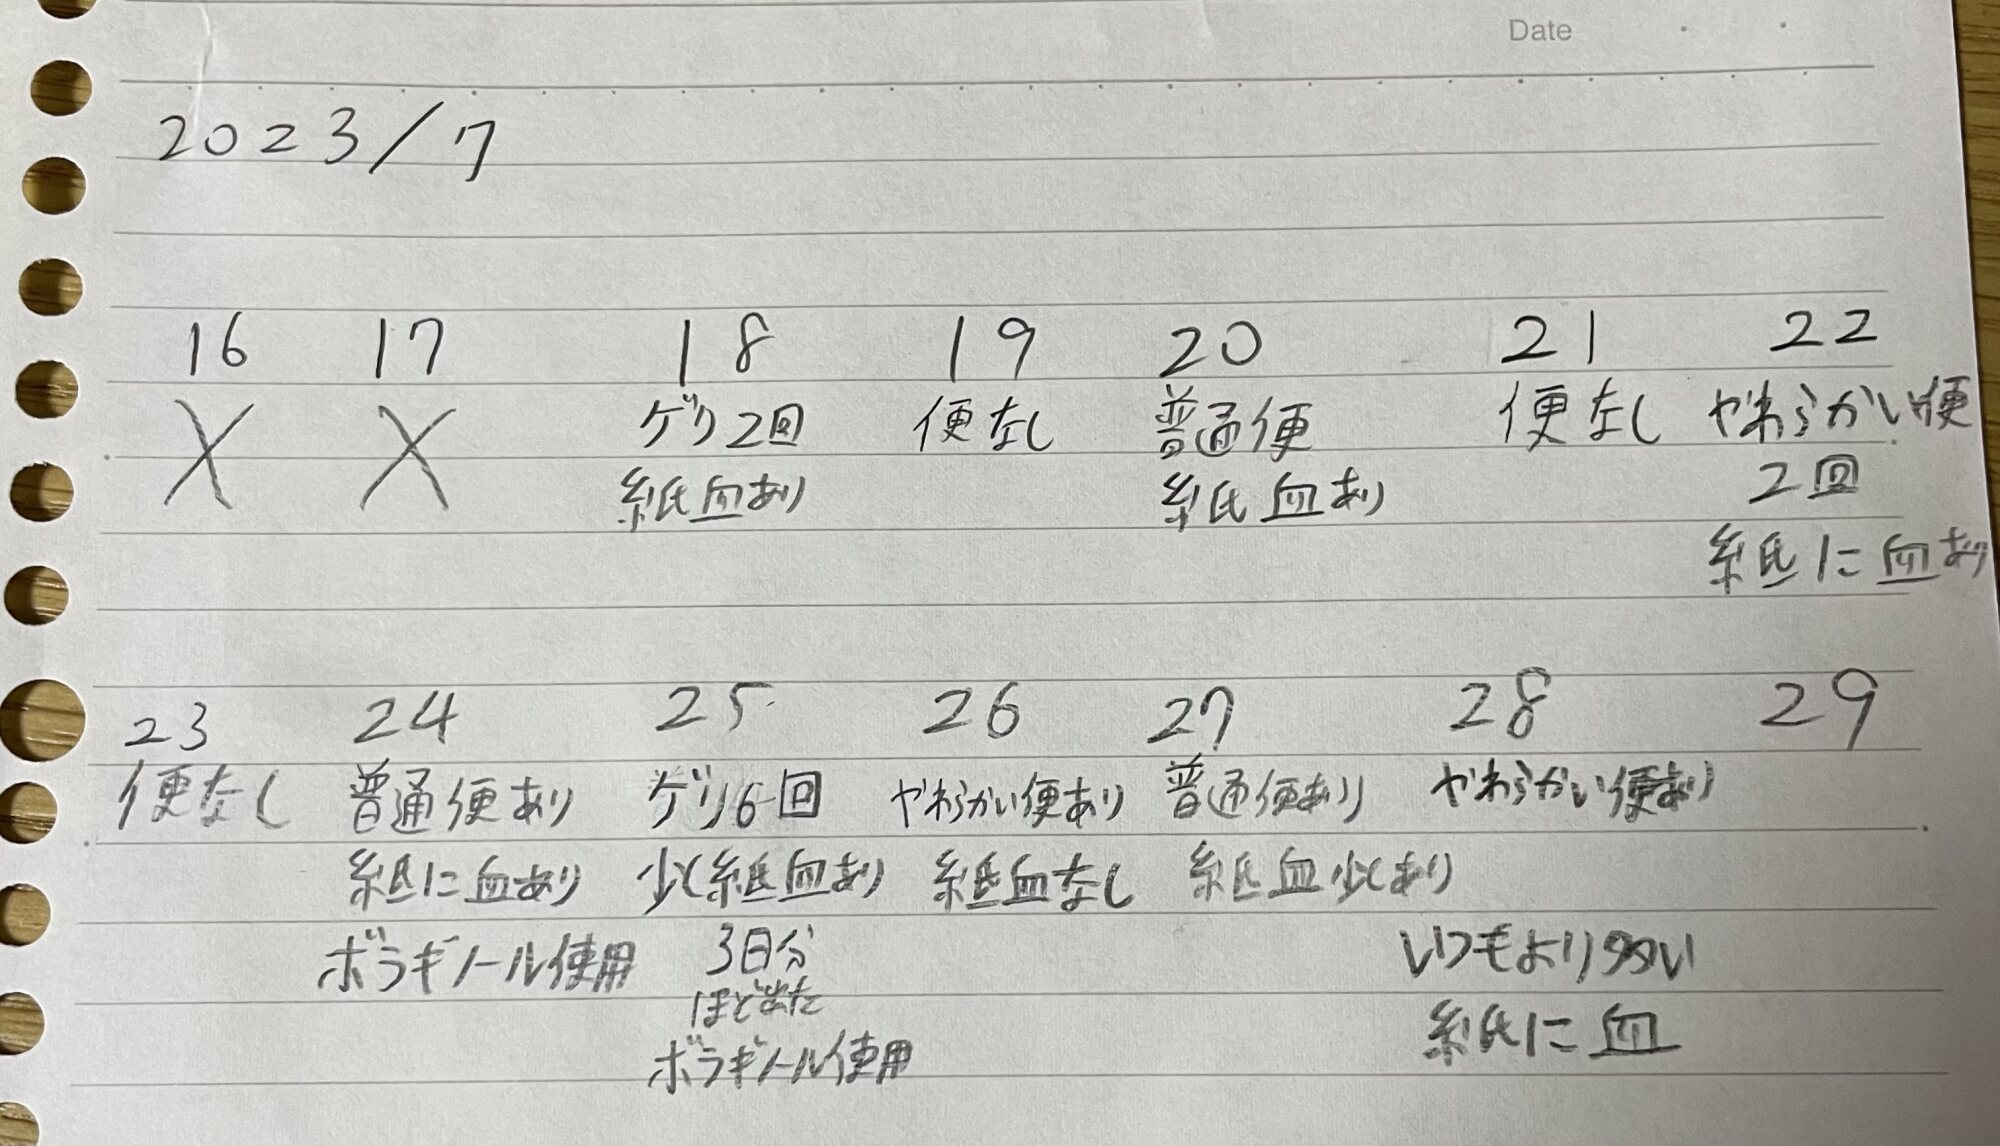 Date
2023/7
16 17 18 19 20 21 22
X X ゲリ2回 便なし 普通便 便なし やわらかい便
紙血あり 紙血あり 2回
紙に血あり
23 24 25 26 27 28 29
便なし 普通便あり ゲリ6回 やわらかい便あり 普通便あり やわらかい便あり
紙に血あり 少し紙血あり 紙血なし 紙血少しあり
ボラギノール使用 3日分 いつもより多い
ほど出た 紙に血
ボラギノール使用